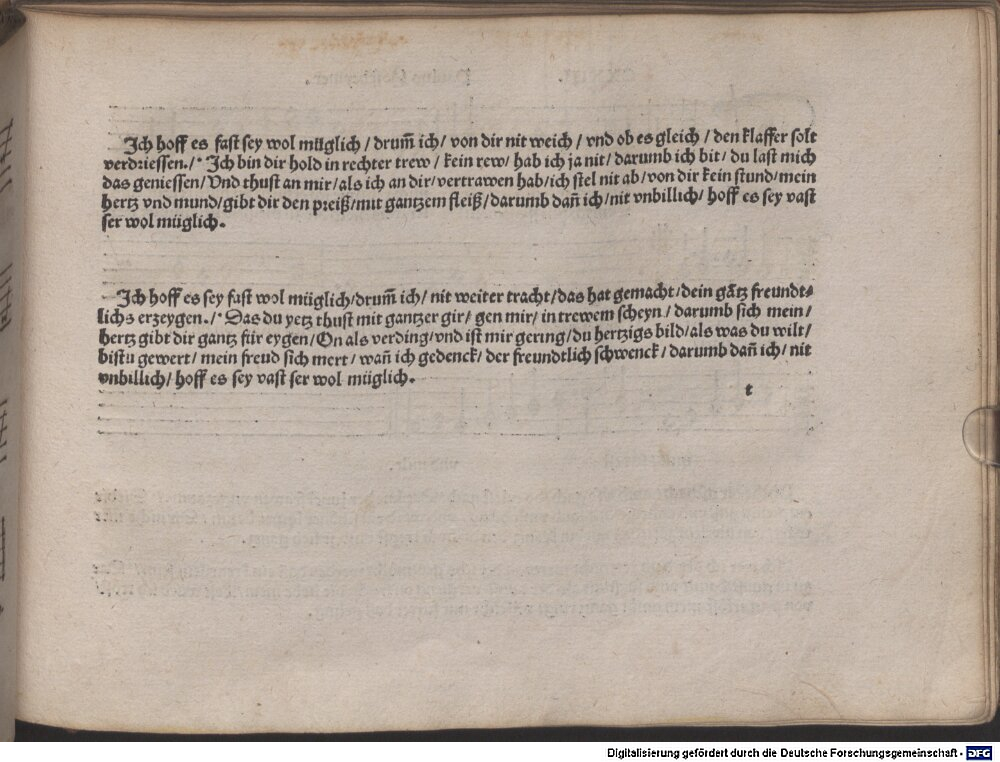 Ich hoff es fast sey wol müglich / drum̄ ich / von dir nit weich / vnd ob es gleich / den klaffer solt
verdriessen./· Ich bin dir hold in rechter trew / kein rew / hab ich ja nit / darumb ich bit / du last mich
das geniessen/ Vnd thust an mir/ als ich an dir/ vertrawen hab/ ich stel nit ab/ von dir kein stund/ mein
hertz vnd mund/ gibt dir den preiß/ mit gantzem fleiß/ darumb dan̄ ich/ nit vnbillich/ hoff es sey vast
ser wol müglich.
Ich hoff es sey fast wol müglich/ drum̄ ich/ nit weiter tracht/ das hat gemacht/ dein gātz freundt-
lichs erzeygen./· Das du yetz thust mit gantzer gir/ gen mir/ in trewem scheyn/ darumb sich mein/
hertz gibt dir gantz für eygen/ On als verding/ vnd ist mir gering/ du hertzigs bild/ als was du wilt/
bistu gewert/ mein freud sich mert/ wan̄ ich gedenck/ der freundtlich schwenck/ darumb dan̄ ich/ nit
vnbillich/ hoff es sey vast ser wol müglich.
t
Digitalisierung gefördert durch die Deutsche Forschungsgemeinschaft - DFG